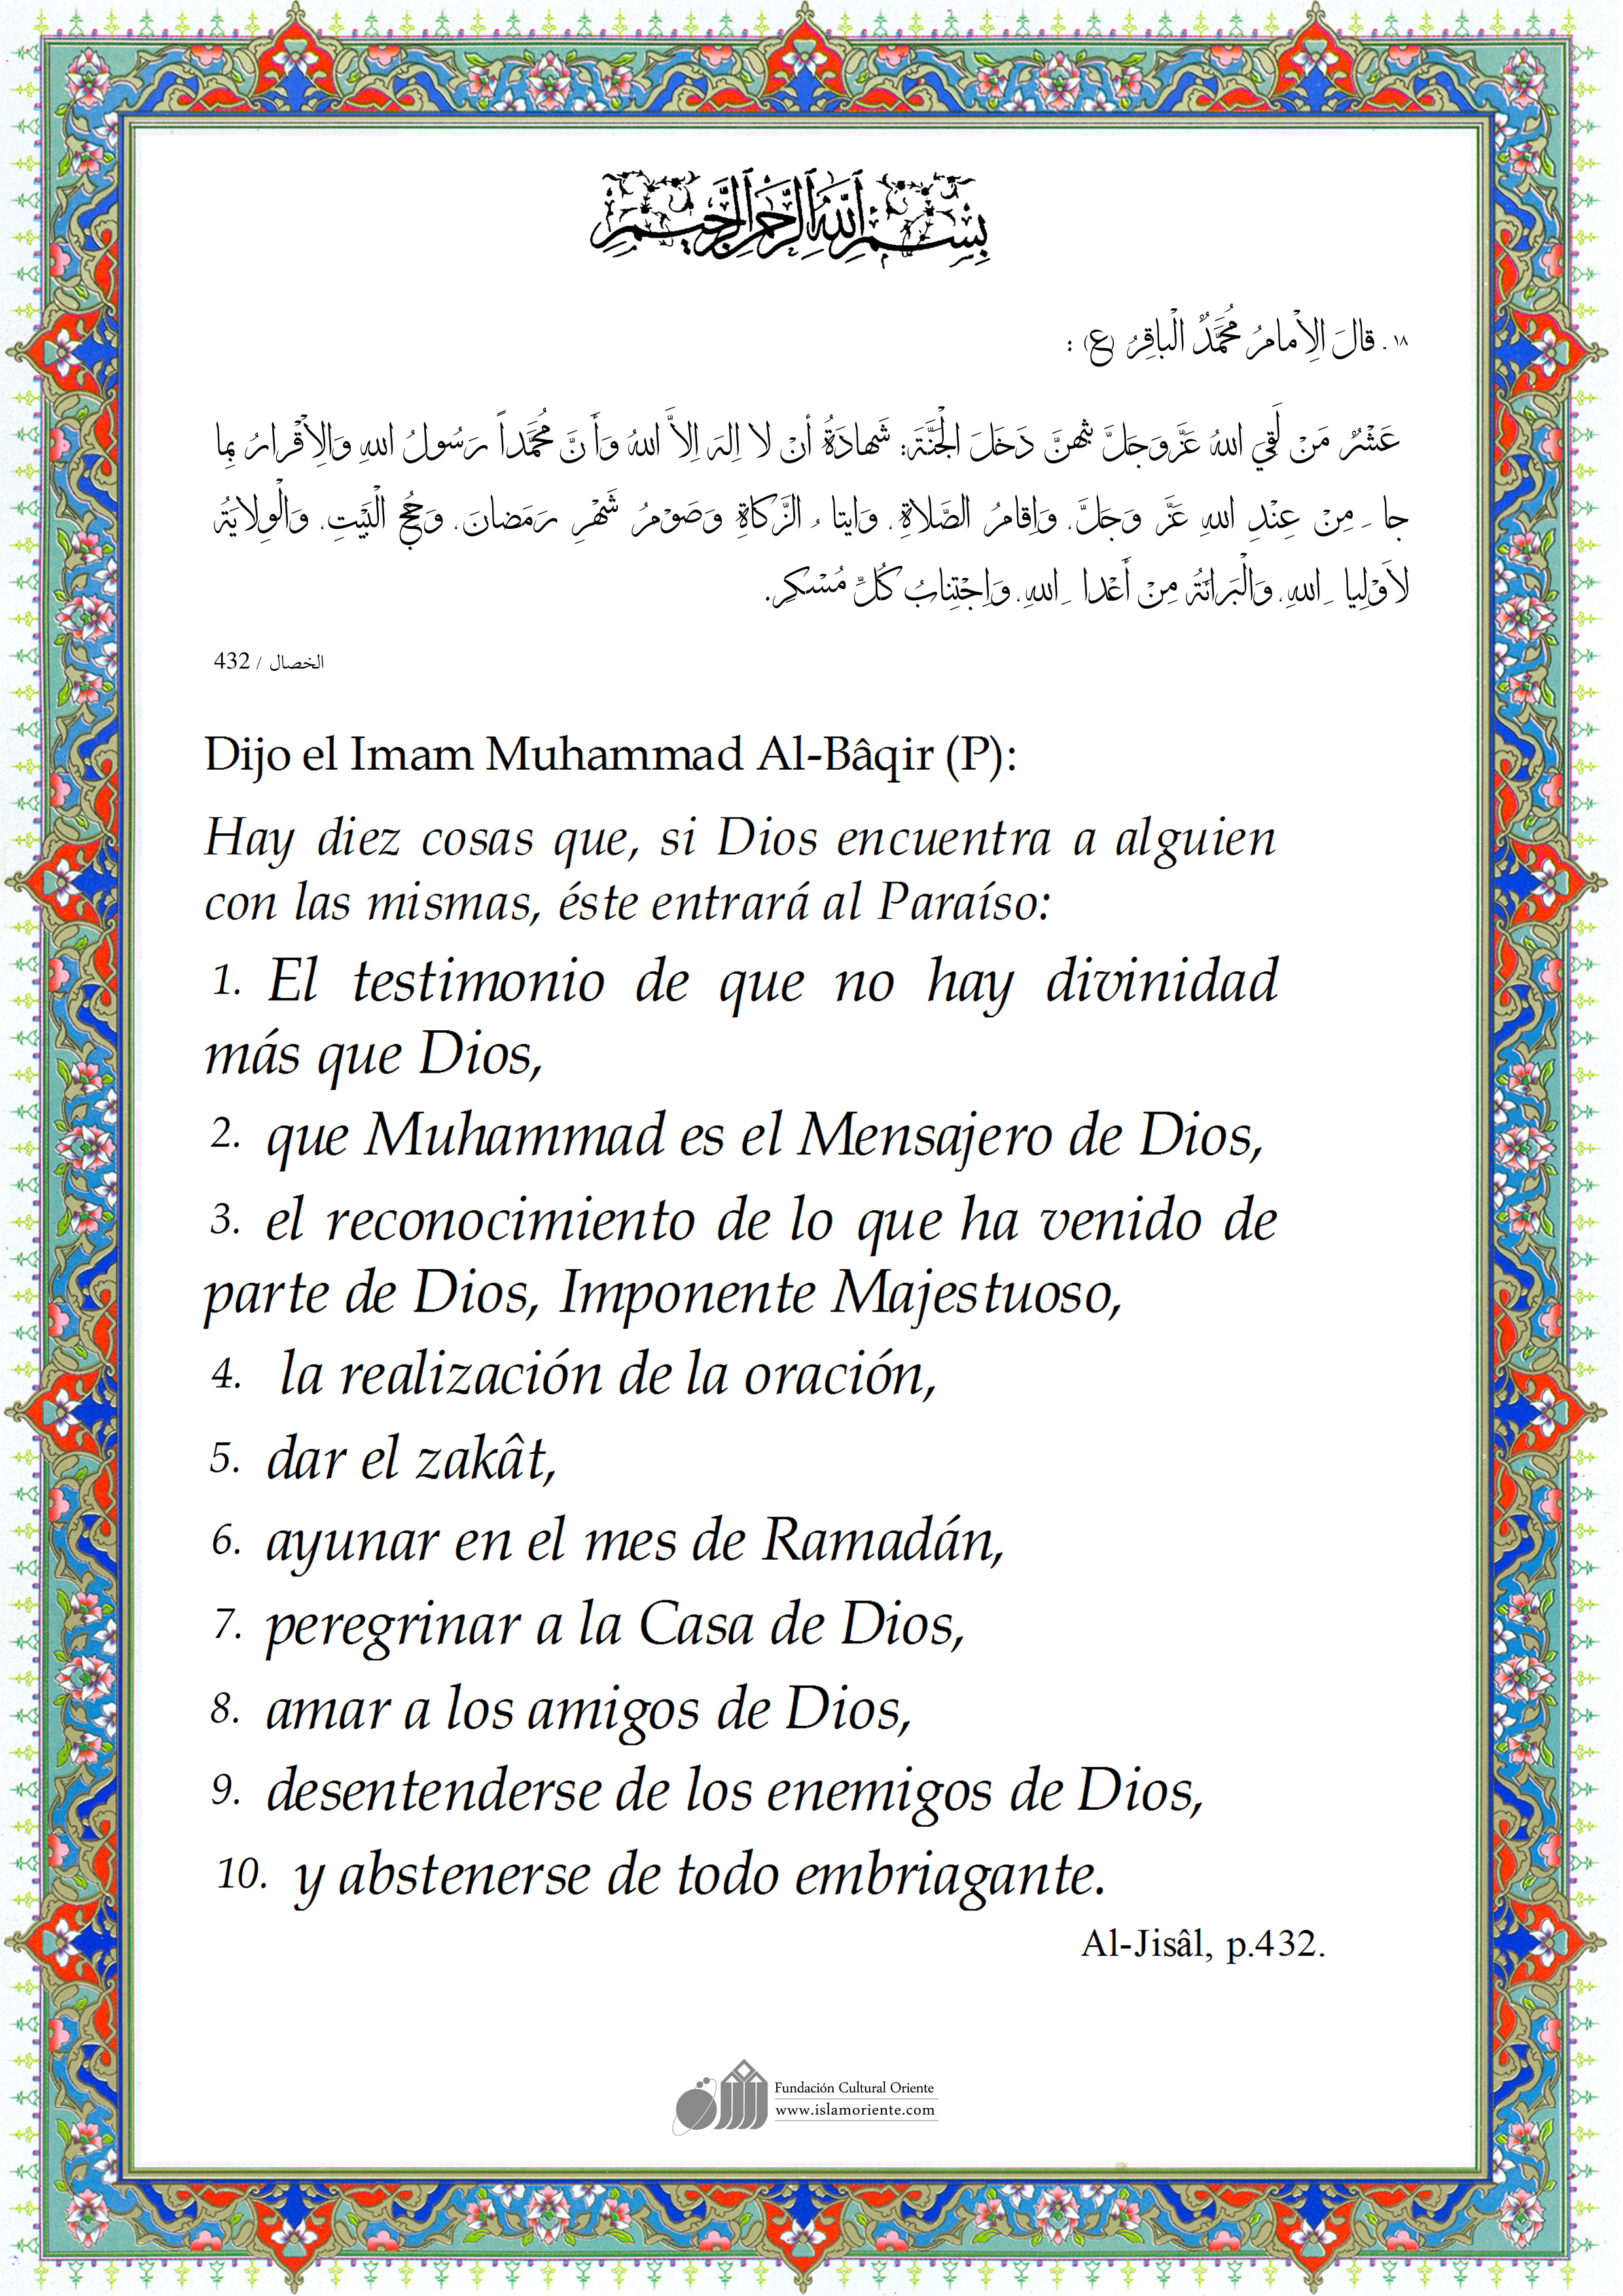 بِسْمِ اللهِ الرَّحْمٰنِ الرَّحِيمِ
١٨ . قالَ الاِْمامُ مُحَمَّدٌ الْباقِرُ (ع) :
عَشْرٌ مَنْ لَقِيَ اللهَ عَزَّوَجَلَّ بِهِنَّ دَخَلَ الْجَنَّةَ: شَهادَةُ أنْ لا اِلهَ اِلاَّ اللهُ وَأَ نَّ مُحَمَّداً رَسُولُ اللهِ وَالاِْقْرارُ بِما
جا ءَ مِنْ عِنْدِ اللهِ عَزَّ وَجَلَّ، وَاِقامُ الصَّلاةِ، وَايتا ءُ الزَّكاةِ وَصَوْمُ شَهْرِ رَمَضانَ، وَحَجُّ الْبَيْتِ، وَالْوِلايَةُ
لاَوْلِيا ءِ اللهِ، وَالْبَرائَةُ مِنْ أَعْدا ءِ اللهِ، وَاِجْتِنابُ كُلِّ مُسْكِرِ.
الخصال / 432
Dijo el Imam Muhammad Al-Bâqir (P):
Hay diez cosas que, si Dios encuentra a alguien
con las mismas, éste entrará al Paraíso:
1. El testimonio de que no hay divinidad
más que Dios,
2. que Muhammad es el Mensajero de Dios,
3. el reconocimiento de lo que ha venido de
parte de Dios, Imponente Majestuoso,
4. la realización de la oración,
5. dar el zakât,
6. ayunar en el mes de Ramadán,
7. peregrinar a la Casa de Dios,
8. amar a los amigos de Dios,
9. desentenderse de los enemigos de Dios,
10. y abstenerse de todo embriagante.
Al-Jisâl, p.432.
Fundación Cultural Oriente
www.islamoriente.com